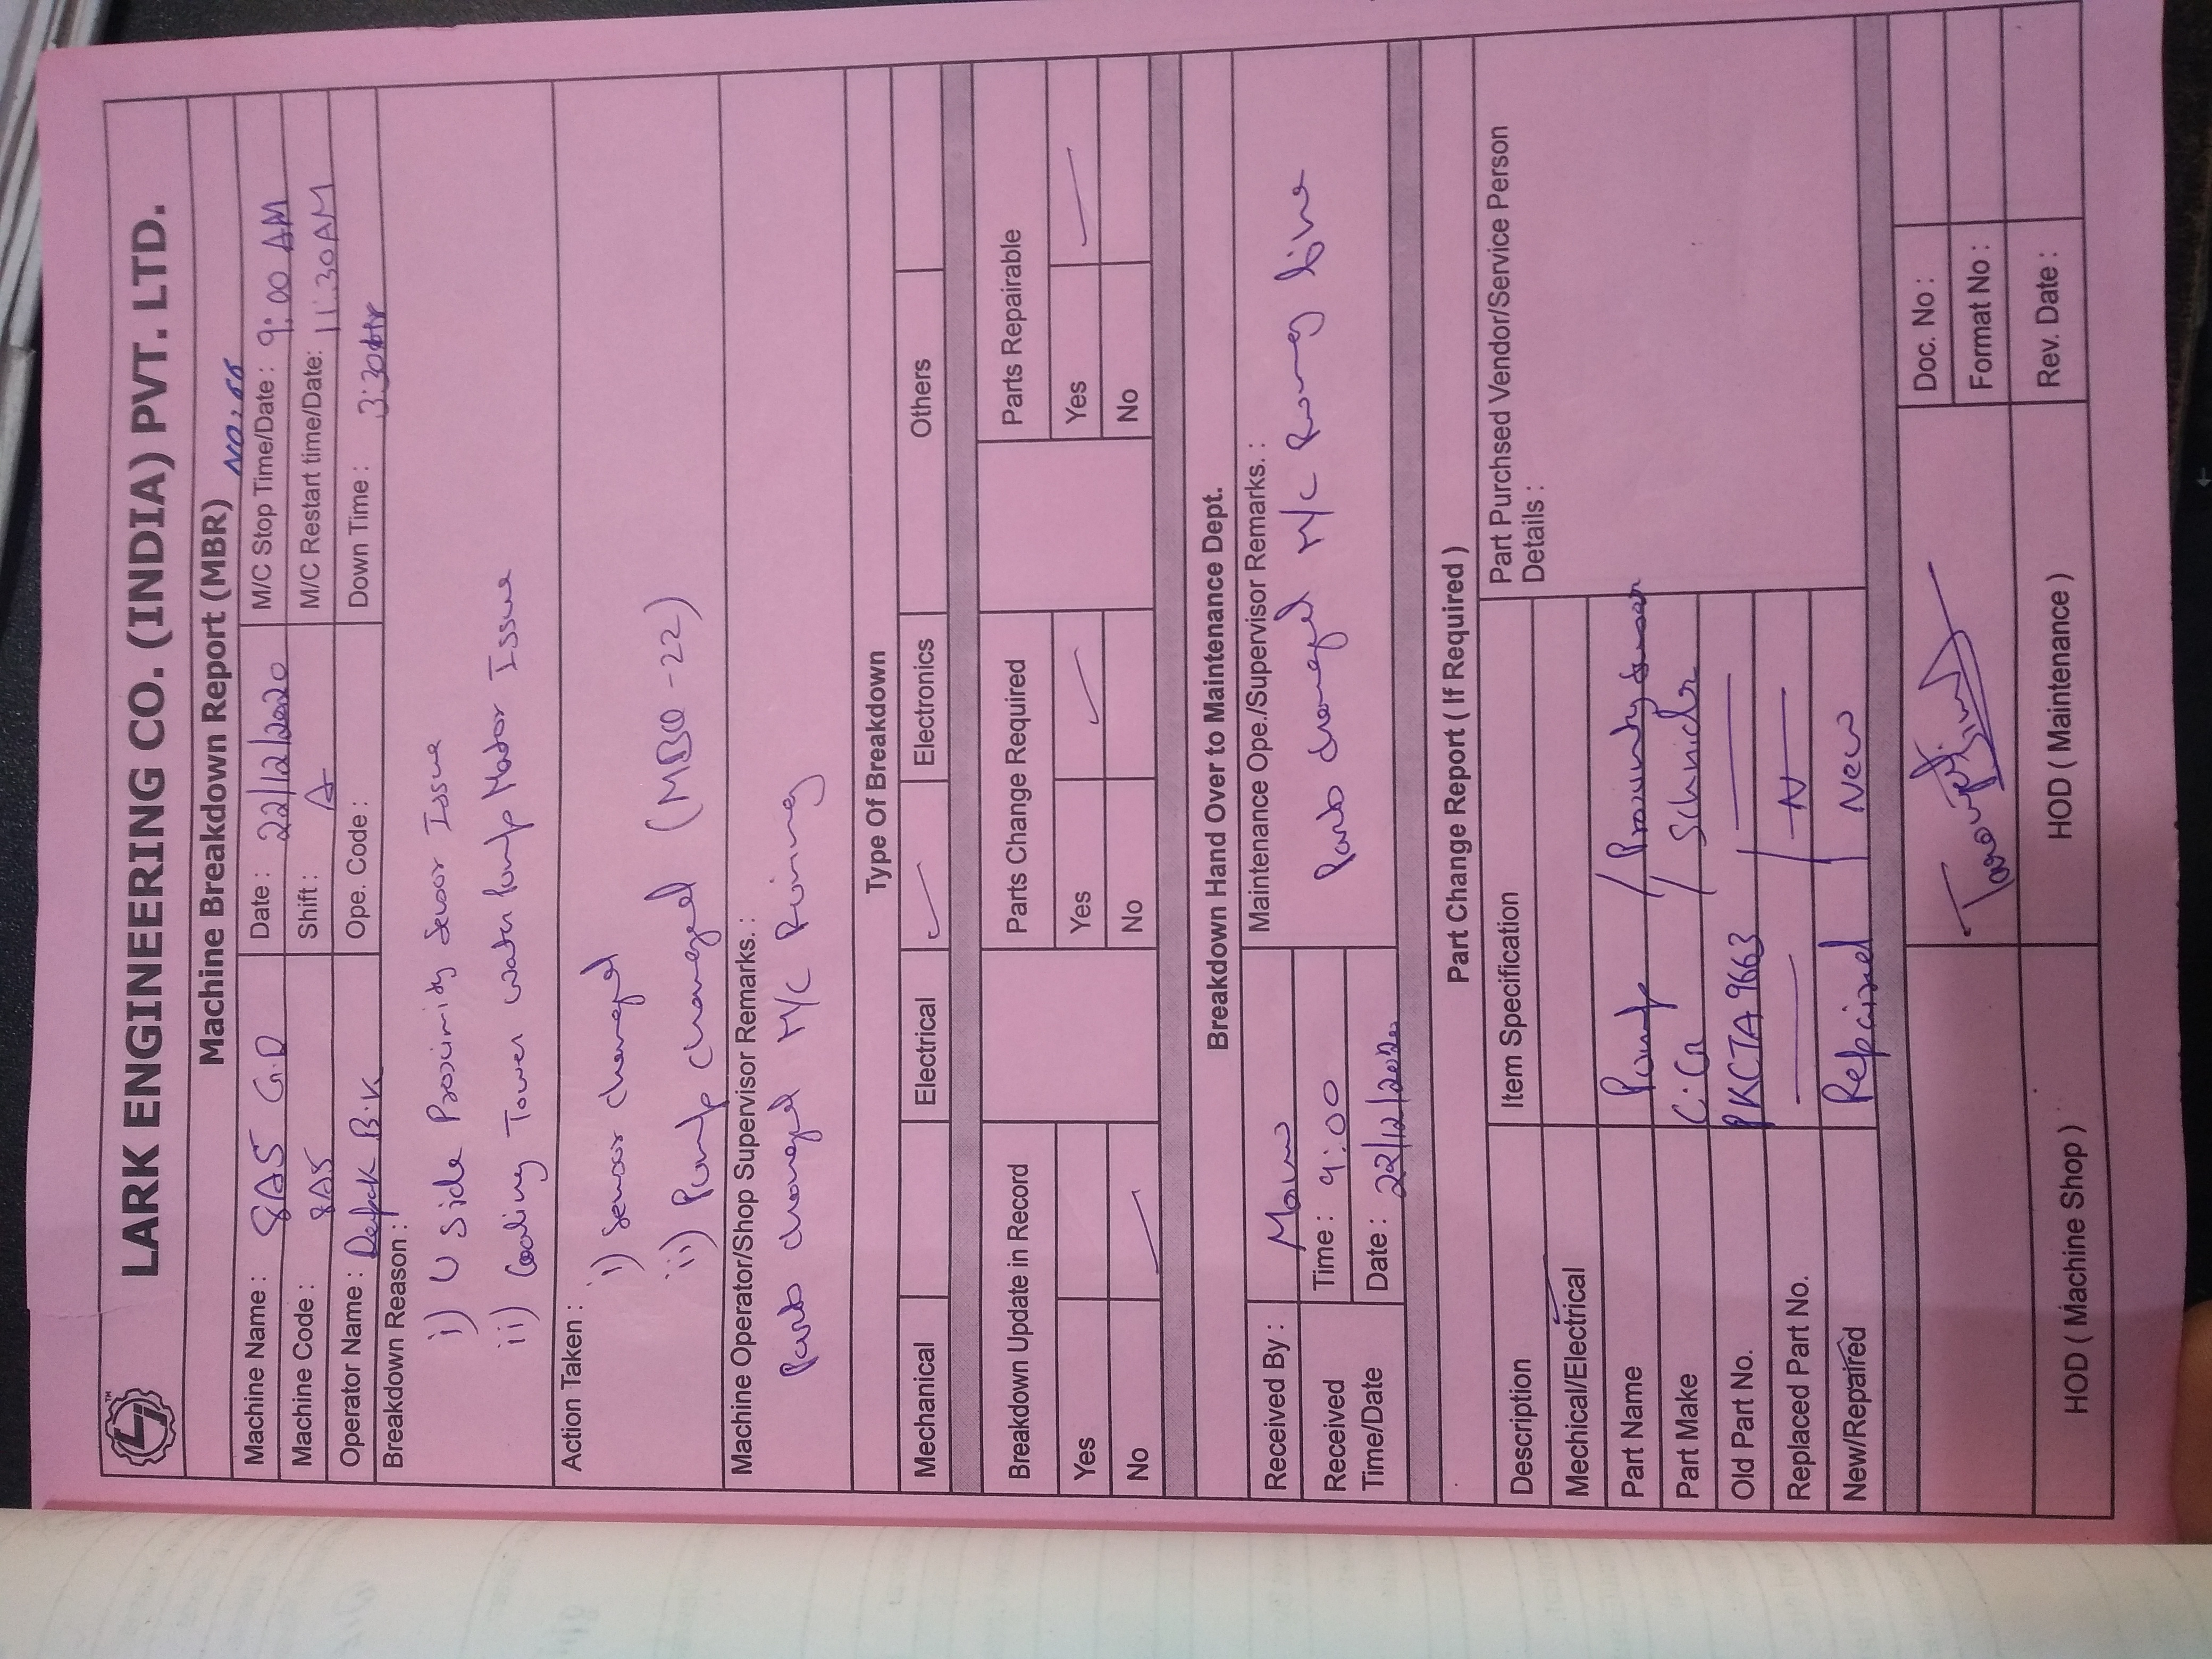 LARK ENGINEERING CO. (INDIA) PVT. LTD.
Machine Breakdown Report (MBR)
Machine Name : 8A5 G.D Date : 22/12/2020 M/C Stop Time/Date : 9:00 AM
Machine Code : 8A5 Shift : A M/C Restart time/Date: 11:30AM
Operator Name : B.K Ope. Code : Down Time : 3:30
Breakdown Reason :
i) U side Proximity Sensor Issue
ii) Cooling Tower water Pump Motor Issue
Action Taken :
i) Sensor changed
ii) Pump changed
Machine Operator/Shop Supervisor Remarks. :
Parts changed M/C Runing
Type Of Breakdown
Mechanical Electrical Electronics Others
Breakdown Update in Record Parts Change Required Parts Repairable
Yes Yes Yes
No No No
Breakdown Hand Over to Maintenance Dept.
Received By : Maintenance Ope./Supervisor Remarks. :
Received Time : 9:00 Parts changed M/C
Time/Date Date : 22/12/2020
Part Change Report ( If Required )
Description Item Specification Part Purchsed Vendor/Service Person
Details :
Mechical/Electrical
Part Name Pump /
Part Make /
Old Part No. PKCTA9663 /
Replaced Part No. N
New/Repaired Repaired / New
Doc. No :
Format No :
HOD ( Machine Shop ) HOD ( Maintenance ) Rev. Date :